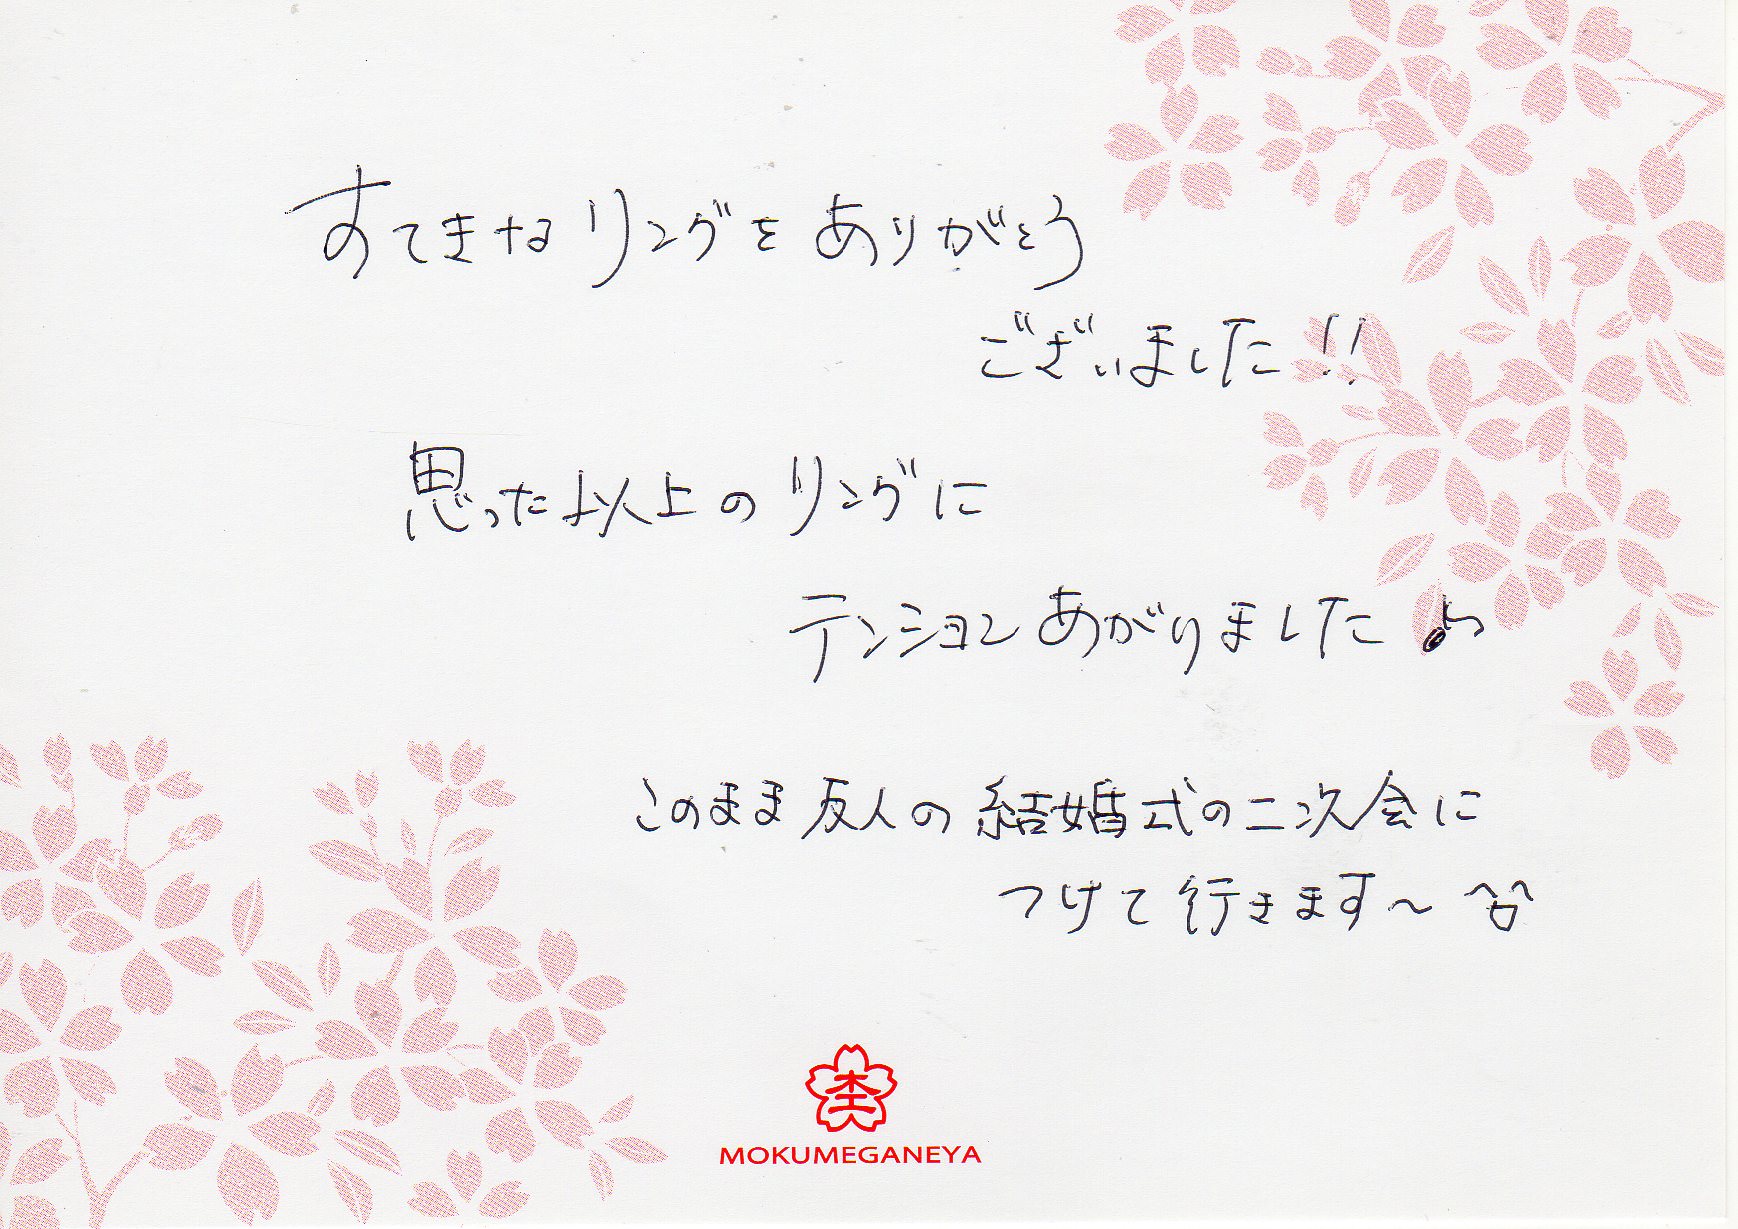 すてきなリングをありがとう
ございました!!
思った以上のリングに
テンションあがりました♪
このまま友人の結婚式の二次会に
つけて行きます～ ^^
MOKUMEGANEYA